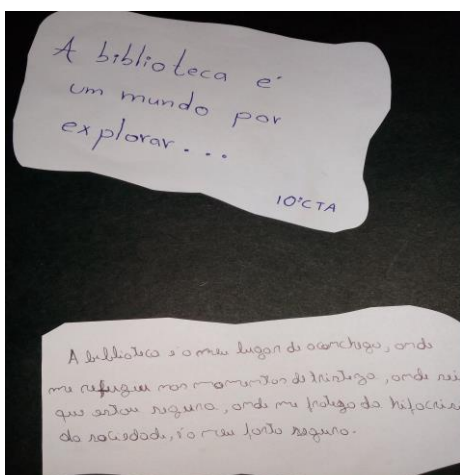 A biblioteca é
um mundo por
explorar...
10ºCTA
A biblioteca é o meu lugar de aconchego, onde
me refugio nos momentos de tristeza, onde sei
que estou segura, onde me protejo da hipocrisia
da sociedade, é o meu porto seguro.